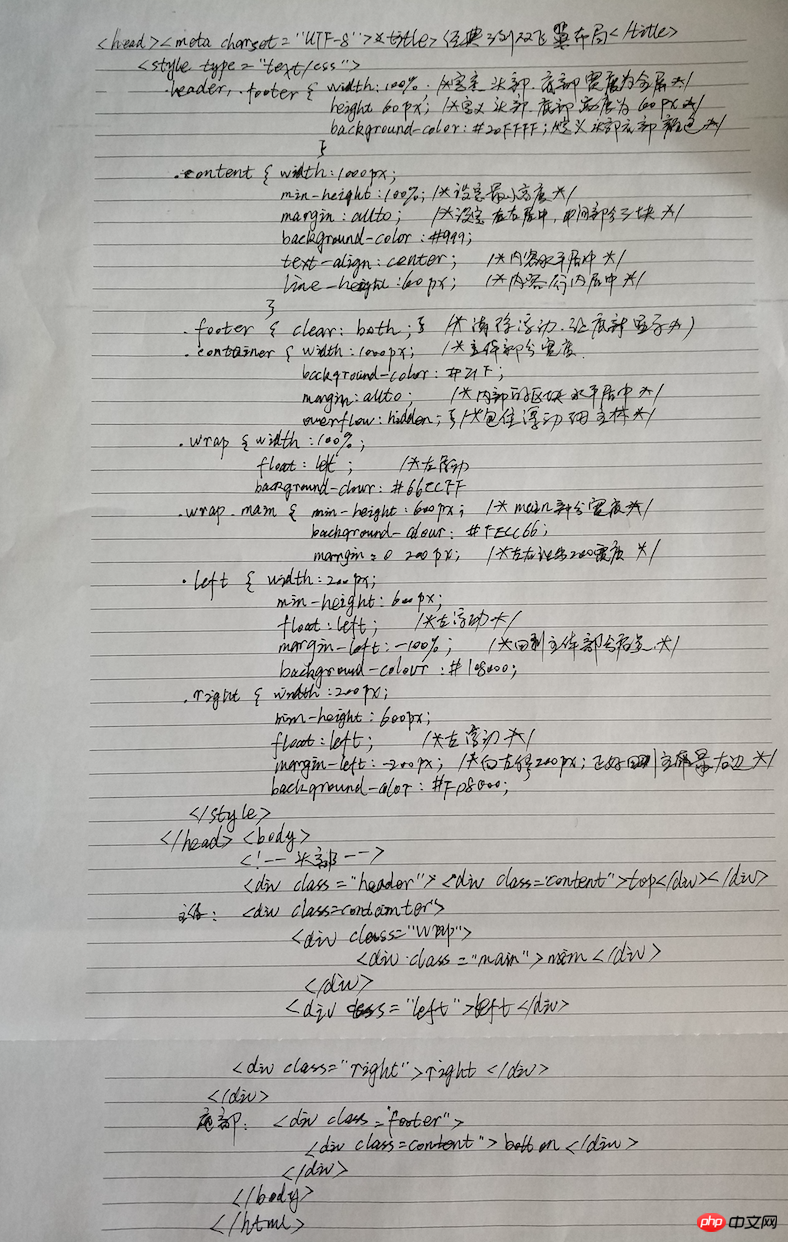 <head><meta charset="UTF-8"><title>经典三列双飞翼布局</title>
<style type="text/css">
.header, .footer { width:100%. /*定义头部.底部宽度为全屏*/
height 60px; /*定义头部.底部高度为60px*/
background-color:#20FFFF; /定义头部底部颜色*/
}
.content { width:1000px;
min-height:100%; /*设定最小高度*/
margin:auto; /*设定左右居中,中间部分三块*/
background-color:#999;
text-align:center; /*内容水平居中*/
line-height:60px; /*内容行内居中*/
}
.footer { clear: both;} /*清除浮动.让底部显示*)
.container { width:1000px; /*主体部分宽度.
background-color:#21F;
margin:auto; /*内部的区块水平居中*/
overflow:hidden;} /*包住浮动的主体*/
.wrap {width:100%;
float:left; /*左浮动
background-clour:#66CCFF
.wrap.main { min-height:600px; /*main部分宽度*/
background-clour:#FECC66;
margin:0 200px; /*左右让出200宽度*/
.left { width:200px;
min-height:600px;
float:left; /*左浮动*/
margin-left:-100%; /*回到主体部分启*/
background-colour:#108000;
.right { width:200px;
min-height:600px;
float:left; /*左浮动*/
margin-left:-200px; /*向左移200px;正好回到主体最右边*/
background-color:#FD8000;
</style>
</head> <body>
<!-- 头部 -->
<div class="header"> <div class="content">top</div></div>
主体: <div class=container">
<div class="wrap">
<div class="main">main</div>
</div>
<div class="left">left</div>
<div class="right">right</div>
</div>
底部: <div class="footer">
<div class=content">botton</div>
</div>
</body>
</html>
php 中文网